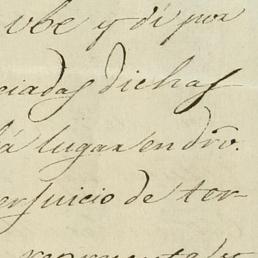 ube y di por
ciadas dichas
á lugar en dro.
erjuicio de ter-